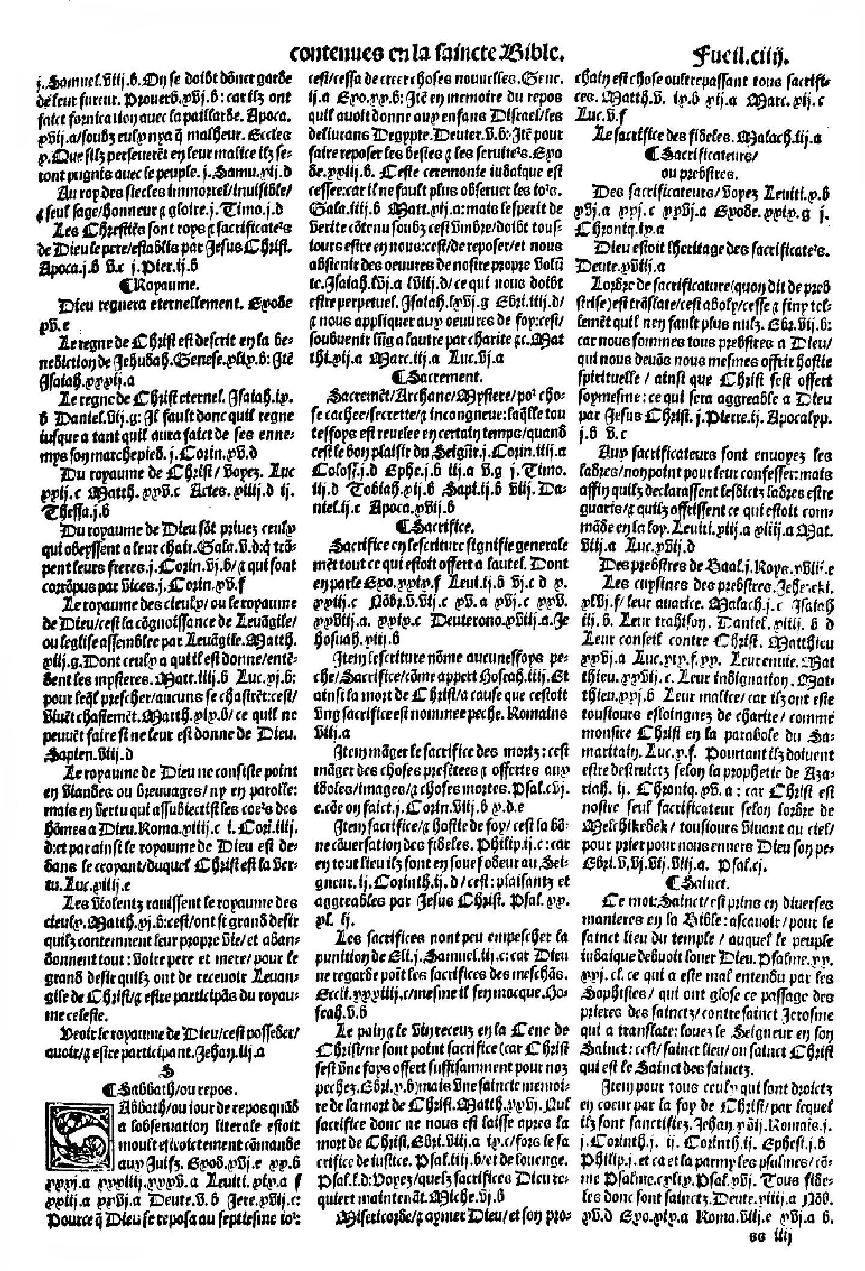 contenues en la saincte Bible.
Fueil.ciiij.
j. Samuel.viij.b. On se doibt dõnet garde
de leur fureur. Proverb.xvj.b: car ilz ont
faict fornication avec la paillarde. Apoca.
xvij.a/soubz eulx nya q̃ malheur. Eccles
x. Que silz perseverẽt en leur malice ilz se-
ront pugnis avec le peuple. j. Samu.xij.d
Au roy des siecles immortel/invisible/
⁊ seul sage/honneur ⁊ gloire. j. Timo.j.d
Les Chrestiẽs sont roys ⁊ sacrificate's
de Dieu le pere/establis par Jesus Christ.
Apoca.j.b v.c j. Pier.ij.b
¶ Royaume.
Dieu regnera eternellement. Exode
xv.c
Le regne de Christ est descrit en la be-
nediction de Jehudah. Genese.xlix.b: Itẽ
Isaiah.xxxij.a
Le regne de Christ eternel. Isaiah.ix.
b Daniel.vij.g: Il fault donc quil regne
iusque a tant quil aura faict de ses enne-
mys son marchepied. j. Corin.xv.d
Du royaume de Christ/voyez. Luc
xxij.c Matth. xxv.c Actes. xiiij.d ij.
Thessa.j.b
Du royaume de Dieu sõt privez ceulx
qui obeyssent a leur chair. Gala.v.d:q̃ trõ-
pent leurs freres. j. Corin.vj.b/⁊ qui sont
corrõpus par vices. j. Corin.xv.f
Le royaume des cieulx/ou le royaume
de Dieu/cest la cognoissance de Levãgile/
ou leglise assemblee par Levãgile. Matth.
xiij.g. Dont ceulx a qui il est donne/entẽ-
dent les mysteres. Matt.iiij.b Luc.xj.b:
pour leq̃l prescher/aucuns se chastrẽt:cest/
vivẽt chastemẽt. Matth.xix.b/ce quil ne
peuvẽt faire si ne leur est donne de Dieu.
Sapien.viij.d
Le royaume de Dieu ne consiste point
en viandes ou breuvages/ny en parolle:
mais en vertu qui assubiectist les coe's des
hõmes a Dieu. Roma.xiiij.c i. Corĩ.iiij.
d:et par ainsi le royaume de Dieu est de-
dans le croyant/duquel Christ est la ver-
tu. Luc.xvij.e
Les violentz ravissent le royaume des
cieulx. Matth.xj.b:cest/ont si grand desir
quilz contemnent leur propre vie/et aban-
donnent tout: voire pere et mere/pour le
grand desir quilz ont de recevoir Levan-
gile de Christ/⁊ estre participãs du royau-
me celeste.
Veoir le royaume de Dieu/cest posseder/
avoir/⁊ estre participant. Jehan.iij.a
S
¶ Sabbath/ou repos.
SAbbath/ou iour de repos quãd
a lobservation literale estoit
moult estroictement cõmande
aux Juifz. Exod.xvj.e xx.b
xxxj.a xxxiiij.xxxv.a Leviti.xix.a f
xxiij.a xxvj.a Deute.v.b Jere.xvij.c:
Pource q̃ Dieu se reposa au septiesme io':
cest/cessa de creer choses nouvelles. Gene.
ij.a Exo.xx.b: Itẽ en memoire du repos
quil avoit donne aux enfans Disrael/les
delivrans Degypte. Deuter.v.b: Itẽ pour
faire reposer les bestes ⁊ les serviте's. Exo
de.xxiij.b. Ceste ceremonie iudaique est
cessee:car il ne fault plus observer les io's.
Gala.iiij.b Matt.xij.a: mais le sperit de
verite cõtenu soubz cest vmbre/doibt tous-
iours estre en nous:cest/de reposer/et nous
abstenir des oeuvres de nostre propre volũ
te. Isaiah.lvj.a lviij.d/ce qui nous doibt
estre perpetuel. Isaiah.lxvj.g Ebri.iiij.d/
⁊ nous appliquer aux oeuvres de foy:cest/
soubvenir lũg a lautre par charite ⁊c. Mat
thi.xij.a Marc.iij.a Luc.vj.a
¶ Sacrement.
Sacremẽt/Archane/Mystere/po' cho-
se cachee/secrette/⁊ incongneue:laq̃lle tou
tesfoys est revelee en certain temps/quand
cest le bon plaisir du Seigñr. j. Corin.iiij.a
Coloss.j.d Ephe.j.b iij.a v.g j. Timo.
iij.d Tobiah.xij.b Sapi.ij.b viij. Da-
niel.ij.c Apoca.xvij.b
¶ Sacrifice.
Sacrifice en lescriture signifie generale
mẽt tout ce qui estoit offert a lautel. Dont
en parle Exo.xxix.f Levi.ij.b vj.c d x.
xxiij.c Nõb.v.vij.c xv.a xvj.c xxv.
xxviij.a. xxix.c Deuterono.xviij.a. Je
hosuah.xiij.b
Item lescriture nõme aucunesfoys pe-
che/Sacrifice/cõme appert Hoseah.iiij. Et
ainsi la mort de Christ/a cause que cestoit
vng sacrifice est nommee peche. Romains
viij.a
Item mãger le sacrifice des mortz: cest
mãger des choses presẽtees ⁊ offertes aux
idoles/images/⁊ choses mortes. Psal.cvj.
e.cõe on faict. j. Corin.viij.b x.d.e
Item sacrifice/⁊ hostie de foy/cest la bõ-
ne cõversation des fideles. Philip.ij.c:car
en tout lieu ilz sont en souef odeur au Sei-
gneur.ij. Corinth.ij.d/cest: plaisantz et
aggreables par Jesus Christ. Psal.xx.
xl. lj.
Les sacrifices nont peu empescher la
punition de Eli. j. Samuel.iij.c:car Dieu
ne regarde poĩt les sacrifices des meschãs.
Eccli.xxxiiij.c/mesme il sen mocque. Ho-
seah.v.b
Le pain ⁊ le vin receuz en la Cene de
Christ/ne sont point sacrifice (car Christ
sest vne foys offert suffisamment pour noz
pechez. Ebri.x.b) mais vne saincte memoi-
re de la mort de Christ. Matth.xxvj. Nul
sacrifice donc ne nous est laisse apres la
mort de Christ. Ebri.viij.a ix.c/fors le sa
crifice de iustice. Psal.iiij.b/et de louenge.
Psal.l.d: Voyez/quelz sacrifices Dieu re-
quiert maintenãt. Miche.vj.b
Misericorde/⁊ aymer Dieu/et son pro-
chain est chose oultrepassant tous sacrifi-
ces. Matth.v. ix.b xij.a Marc.xij.c
Luc.x.f
Le sacrifice des fideles. Malach.iij.a
¶ Sacrificateurs/
ou prebstres.
Des sacrificateurs/voyez Leviti.x.b
xvj.a xxj.c xxvj.a Exode.xxix.g j.
Chroniq.ix.a
Dieu estoit lheritage des sacrificate's.
Deute.xviij.a
Lordre de sacrificature/quon dit de preb
strise/est trãslate/cest aboly/cesse ⁊ finy tel-
lemẽt quil nen fault plus nulz. Ebr.vij.b:
car nous sommes tous prebstres a Dieu/
qui nous devõs nous mesmes offrir hostie
spirituelle/ainsi que Christ sest offert
soymesme:ce qui sera aggreable a Dieu
par Jesus Christ. j. Pierre.ij. Apocalyp.
j.b v.c
Aux sacrificateurs sont envoyez les
ladres/non point pour leur confesser:mais
affin quilz declarassent lesdictz ladres estre
guaris/⁊ quilz offrissent ce qui estoit com-
mãde en la loy. Leviti.xiij.a xiiij.a Mat.
viij.a Luc.xvij.d
Des prebstres de Baal. j. Roys.xviij.e
Les cuysines des prebstres. Jehezcki.
xlvj.f/leur avarice. Malach.j.c Isaiah
ij.b. Leur trahison. Daniel.xiij.b d
Leur conseil contre Christ. Matthieu
xxvj.a Luc.xix.f.xx. Leur envie. Mat
thieu.xxvij.c. Leur indignation. Mat-
thieu.xxj.b Leur malice/car ilz ont este
tousiours esloingnez de charite/comme
monstre Christ en la parabole du Sa-
maritain. Luc.x.f. Pourtant ilz doivent
estre destruictz selon la prophetie de Aza-
riah. ij. Chroniq.xv.a: car Christ est
nostre seul sacrificateur selon lordre de
Melchizedek/tousiours vivant au ciel/
pour prier pour nous envers Dieu son pe-
Ebri.v.vj.vij.viij.a. Psal.cj.
¶ Sainct.
Ce mot: Sainct/est prins en diverses
manieres en la Bible:ascavoir/pour le
sainct lieu du temple/auquel le peuple
iudaique debvoit louer Dieu. Psalme.xx.
xxj.cl.ce qui a este mal entendu par les
Sophistes/qui ont glose ce passage des
prieres des sainctz/contre sainct Jerosme
qui a translate: louez le Seigneur en son
Sainct: cest/sainct lieu/ou sainct Christ
qui est le Sainct des sainctz.
Item pour tous ceulx qui sont droictz
en coeur par la foy de Christ/par lequel
ilz sont sanctifiez. Jehan.xvij. Romaĩs.j.
j. Corinth.j. ij. Corinth.ij. Ephesi.j.b
Philip.j. et ca et la parmy les psalmes/cõ-
me Psalme.cxlix. Psal.xvj. Tous fide-
les donc sont sainctz. Deute.xiiij.a Nõb.
xv.d Exo.xix.a Roma.viij.e xvj.a b.
GG iiij